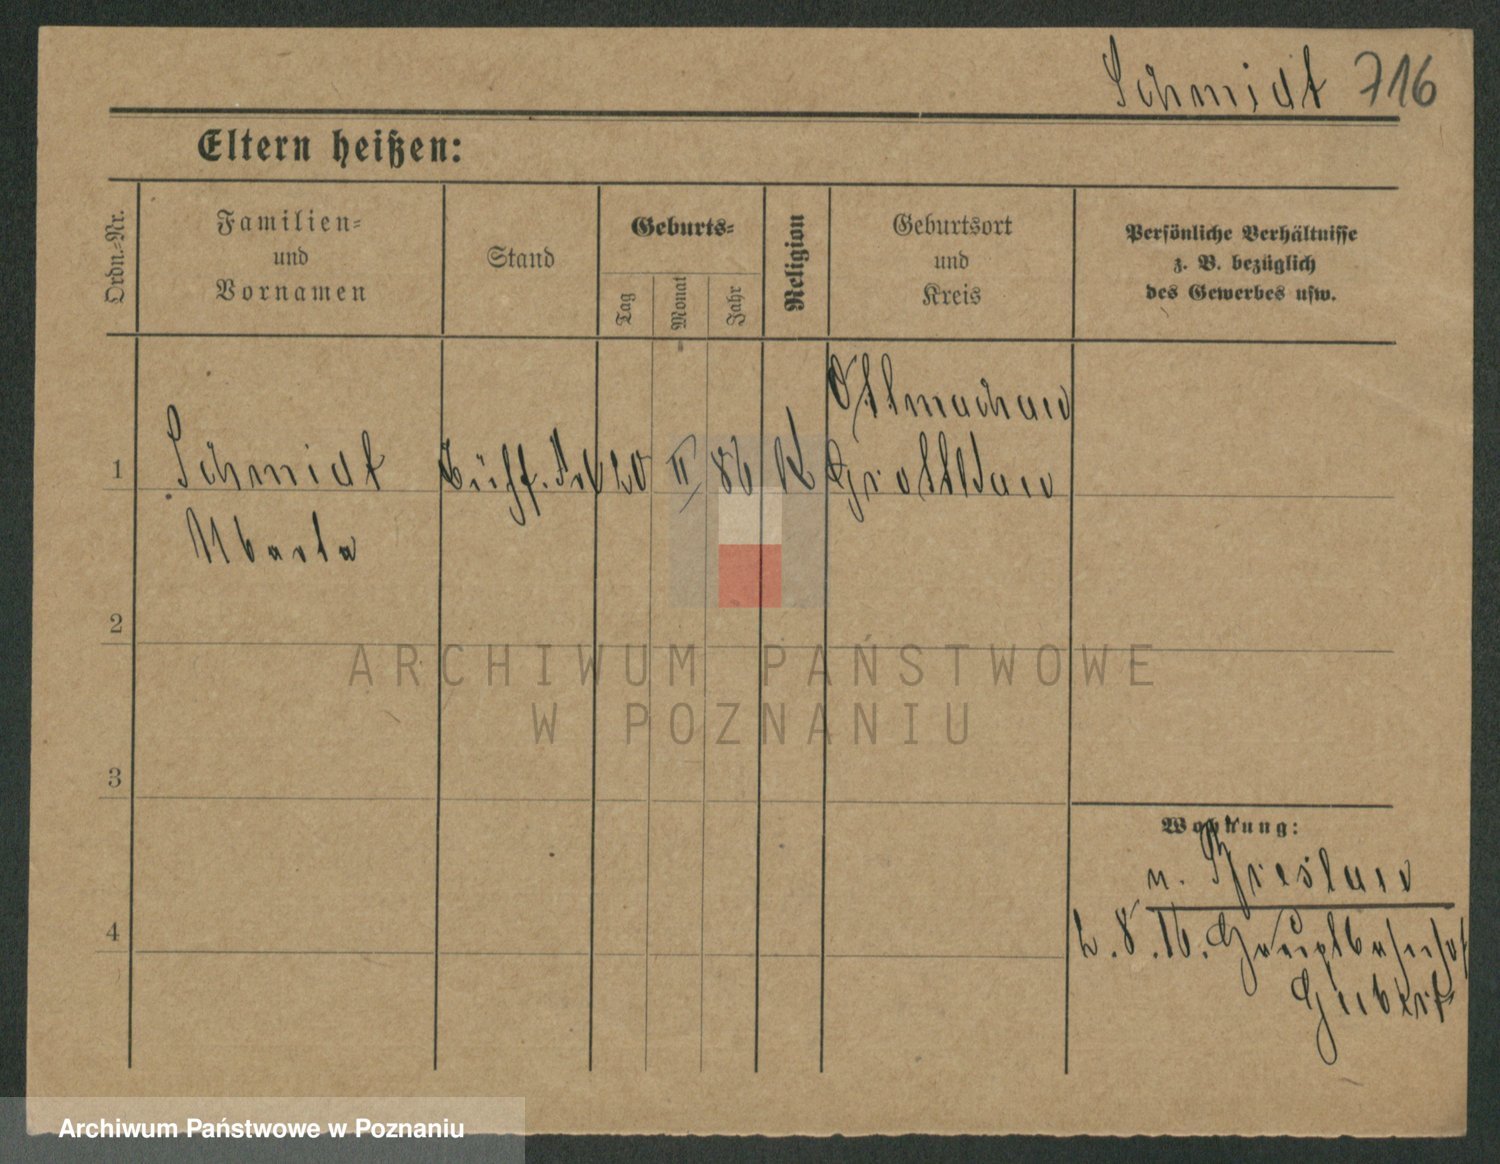 Schmidt 716
Eltern heißen:
Ordn.-Nr.
Familien-
und
Vornamen
Stand
Geburts-
Tag
Monat
Jahr
Religion
Geburtsort
und
Kreis
Persönliche Verhältnisse
z. B. bezüglich
des Gewerbes usw.
Ottmachau
1 Schmidt Büff. Frl 20 II 86 K Grottkau
Marta
2
3
4
Wohnung:
n. Breslau
2.8.16. Hauptbahnhof
ARCHIWUM PAŃSTWOWE
W POZNANIU
Archiwum Państwowe w Poznaniu